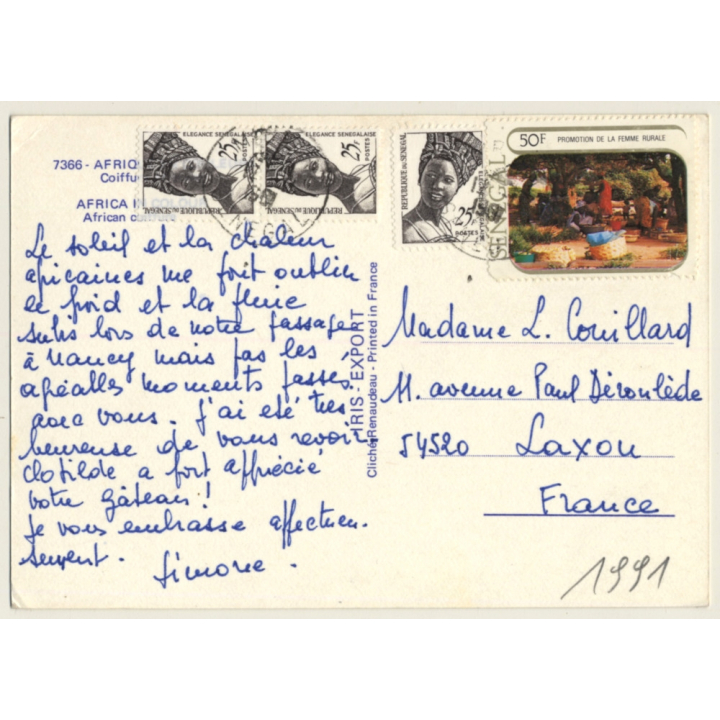 ELEGANCE SENEGALAISE
25F
POSTES
REPUBLIQUE DU SENEGAL
ELEGANCE SENEGALAISE
25F
POSTES
REPUBLIQUE DU SENEGAL
REPUBLIQUE DU SENEGAL
25F
POSTES
50F PROMOTION DE LA FEMME RURALE
SENEGAL
7366 - AFRIQ
Coiffu
AFRICA IN COLOU
African
Le soleil et la chaleur
africaines me font oublier
le froid et la pluie
subis lors de notre passage
à Nancy mais pas les
agréables moments passés
avec vous. J'ai été très
heureuse de vous revoir
Clotilde a fort apprécié
votre gâteau !
Je vous embrasse affectueu-
sement.
Simone.
IRIS - EXPORT
Cliché Renaudeau - Printed in France
Madame L. Couillard
11. avenue Paul Déroulède
54520 Laxou
France
1991